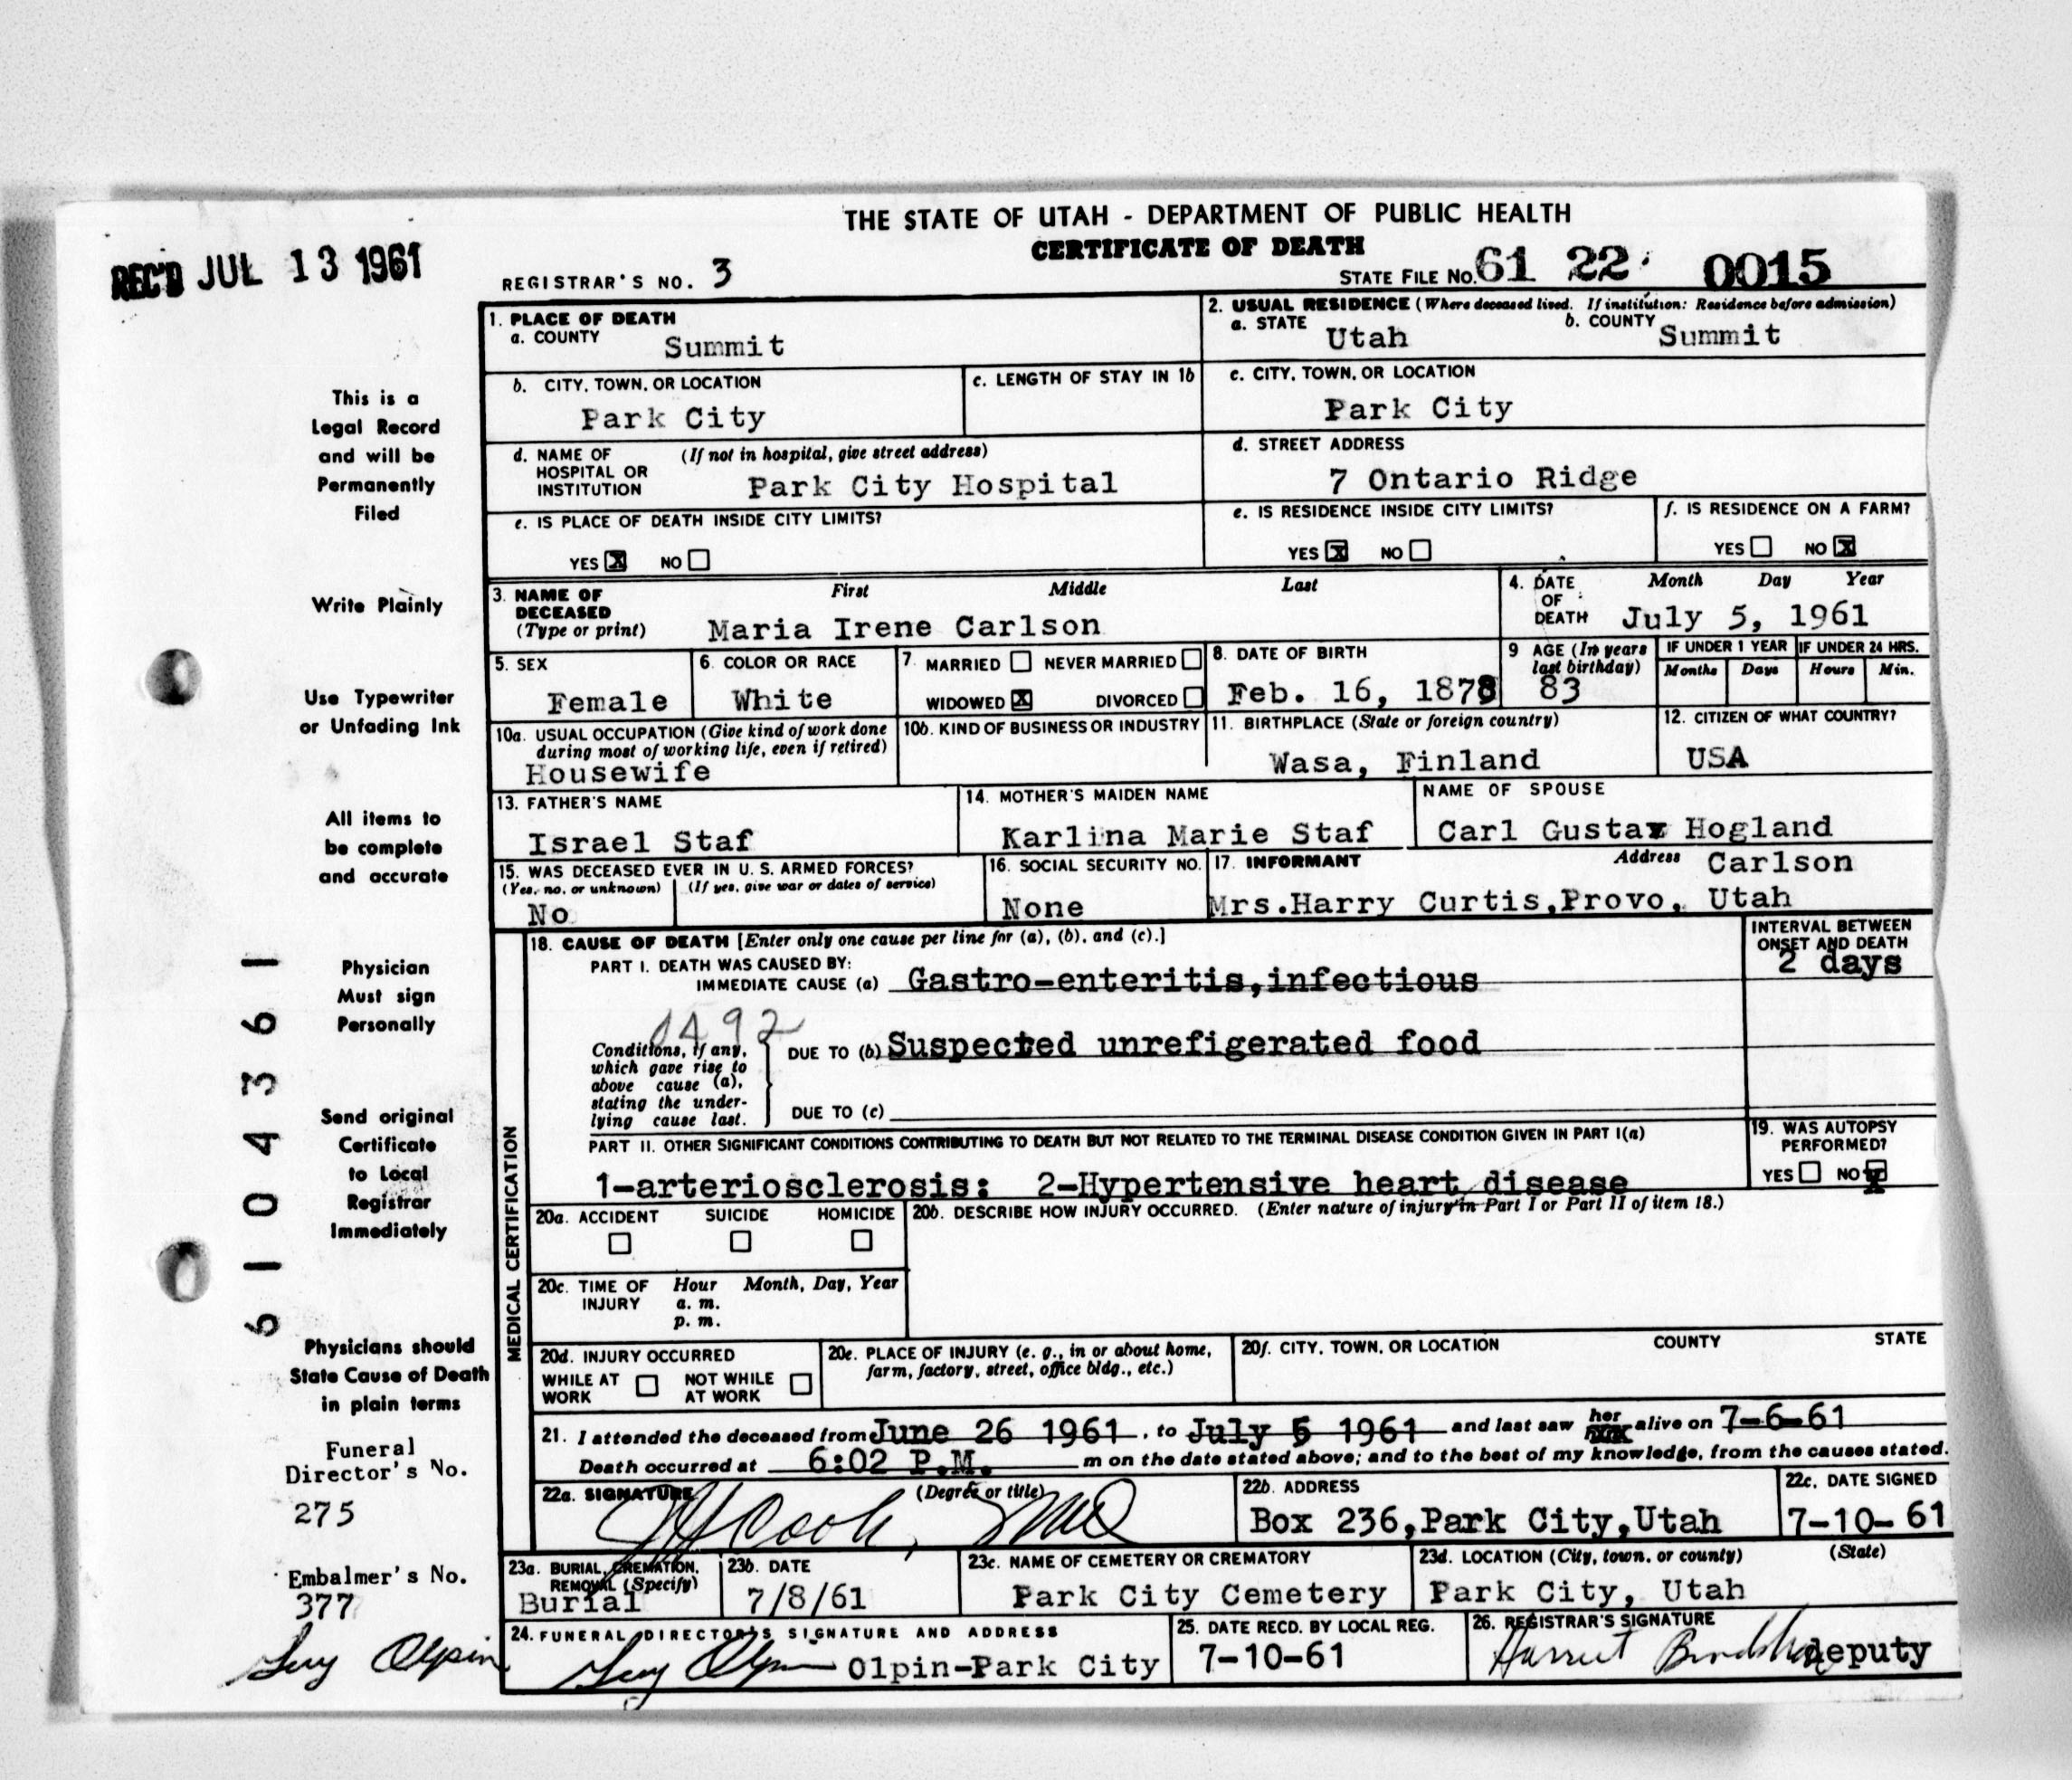 THE STATE OF UTAH - DEPARTMENT OF PUBLIC HEALTH
CERTIFICATE OF DEATH
REC'D JUL 13 1961
REGISTRAR'S NO. 3
STATE FILE NO. 61 22 0015
1. PLACE OF DEATH
a. COUNTY Summit
2. USUAL RESIDENCE (Where deceased lived. If institution: Residence before admission)
a. STATE Utah b. COUNTY Summit
b. CITY, TOWN, OR LOCATION Park City
c. LENGTH OF STAY IN 1b
c. CITY, TOWN, OR LOCATION Park City
d. NAME OF HOSPITAL OR INSTITUTION (If not in hospital, give street address) Park City Hospital
d. STREET ADDRESS 7 Ontario Ridge
e. IS PLACE OF DEATH INSIDE CITY LIMITS?
YES X NO
e. IS RESIDENCE INSIDE CITY LIMITS?
YES X NO
f. IS RESIDENCE ON A FARM?
YES NO X
3. NAME OF DECEASED (Type or print) First Middle Last
Maria Irene Carlson
4. DATE OF DEATH Month Day Year
July 5, 1961
5. SEX Female
6. COLOR OR RACE White
7. MARRIED NEVER MARRIED
WIDOWED X DIVORCED
8. DATE OF BIRTH Feb. 16, 1878
9 AGE (In years last birthday) 83
IF UNDER 1 YEAR Months Days
IF UNDER 24 HRS. Hours Min.
10a. USUAL OCCUPATION (Give kind of work done during most of working life, even if retired)
Housewife
10b. KIND OF BUSINESS OR INDUSTRY
11. BIRTHPLACE (State or foreign country)
Wasa, Finland
12. CITIZEN OF WHAT COUNTRY?
USA
13. FATHER'S NAME
Israel Staf
14. MOTHER'S MAIDEN NAME
Karlina Marie Staf
NAME OF SPOUSE
Carl Gustav Hogland
Carlson
15. WAS DECEASED EVER IN U. S. ARMED FORCES?
(Yes, no, or unknown) (If yes, give war or dates of service)
No
16. SOCIAL SECURITY NO.
None
17. INFORMANT Address
Mrs.Harry Curtis,Provo, Utah
MEDICAL CERTIFICATION
18. CAUSE OF DEATH [Enter only one cause per line for (a), (b), and (c).]
INTERVAL BETWEEN ONSET AND DEATH
2 days
PART I. DEATH WAS CAUSED BY:
IMMEDIATE CAUSE (a) Gastro-enteritis,infectious
0492
Conditions, if any, which gave rise to above cause (a), stating the underlying cause last.
DUE TO (b) Suspected unrefigerated food
DUE TO (c)
PART II. OTHER SIGNIFICANT CONDITIONS CONTRIBUTING TO DEATH BUT NOT RELATED TO THE TERMINAL DISEASE CONDITION GIVEN IN PART I(a)
1-arteriosclerosis: 2-Hypertensive heart disease
19. WAS AUTOPSY PERFORMED?
YES NO X
20a. ACCIDENT SUICIDE HOMICIDE
20b. DESCRIBE HOW INJURY OCCURRED. (Enter nature of injury in Part I or Part II of item 18.)
20c. TIME OF INJURY Hour Month, Day, Year
a. m.
p. m.
20d. INJURY OCCURRED
WHILE AT WORK NOT WHILE AT WORK
20e. PLACE OF INJURY (e. g., in or about home, farm, factory, street, office bldg., etc.)
20f. CITY, TOWN, OR LOCATION COUNTY STATE
21. I attended the deceased from June 26 1961, to July 5 1961 and last saw her alive on 7-6-61
Death occurred at 6:02 P.M. m on the date stated above; and to the best of my knowledge, from the causes stated.
22a. SIGNATURE (Degree or title)
Cook, MD
22b. ADDRESS
Box 236,Park City,Utah
22c. DATE SIGNED
7-10-61
23a. BURIAL, CREMATION, REMOVAL (Specify)
Burial
23b. DATE
7/8/61
23c. NAME OF CEMETERY OR CREMATORY
Park City Cemetery
23d. LOCATION (City, town, or county) (State)
Park City, Utah
24. FUNERAL DIRECTOR'S SIGNATURE AND ADDRESS
Olpin Olpin-Park City
25. DATE RECD. BY LOCAL REG.
7-10-61
26. REGISTRAR'S SIGNATURE
Harriet deputy
This is a
Legal Record
and will be
Permanently
Filed
Write Plainly
Use Typewriter
or Unfading Ink
All items to
be complete
and accurate
Physician
Must sign
Personally
Send original
Certificate
to Local
Registrar
Immediately
Physicians should
State Cause of Death
in plain terms
Funeral
Director's No.
275
Embalmer's No.
377
Olpin
6104361